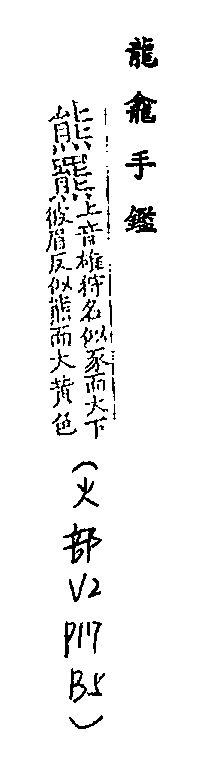 龍龕手鑑
熊羆
上音雄狩名似豕而大下
彼眉反似熊而大黄色
(火部V2P117B5)